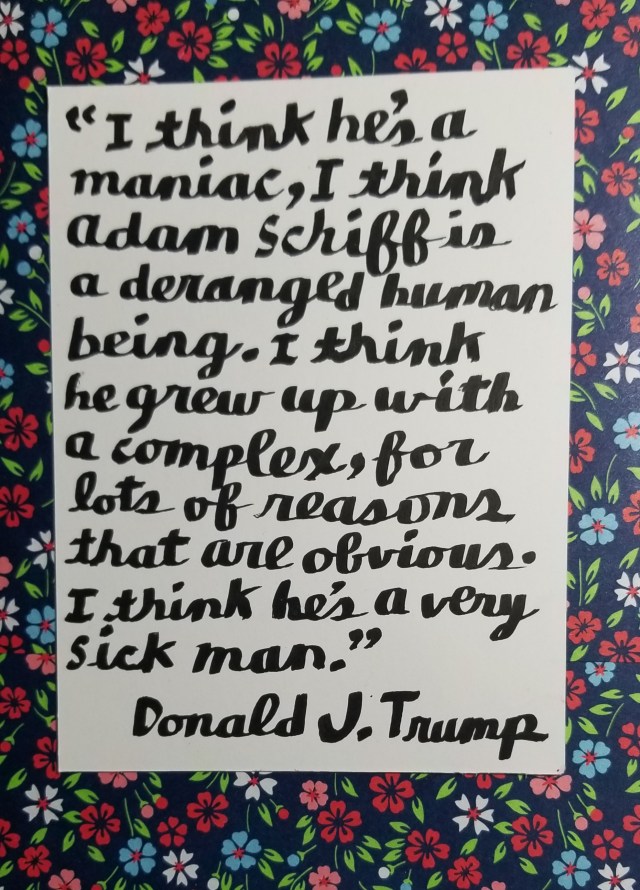 “I think he's a
maniac, I think
Adam Schiff is
a deranged human
being. I think
he grew up with
a complex, for
lots of reasons
that are obvious.
I think he's a very
sick man.”
Donald J. Trump